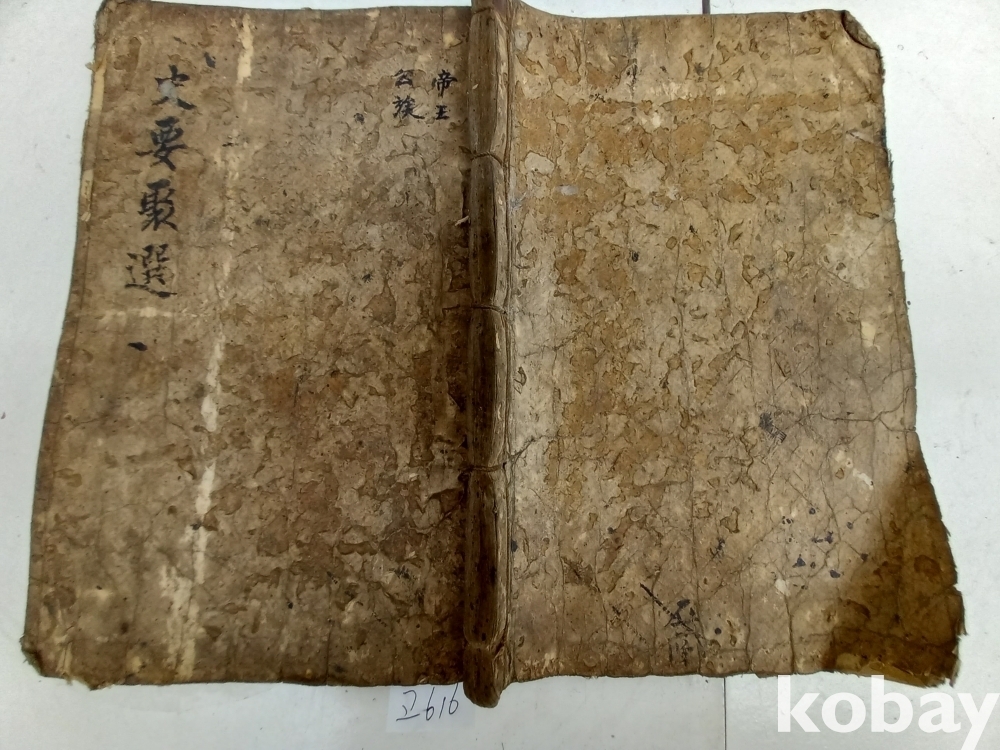 史要聚選
一
帝王
公族
고616
kobay